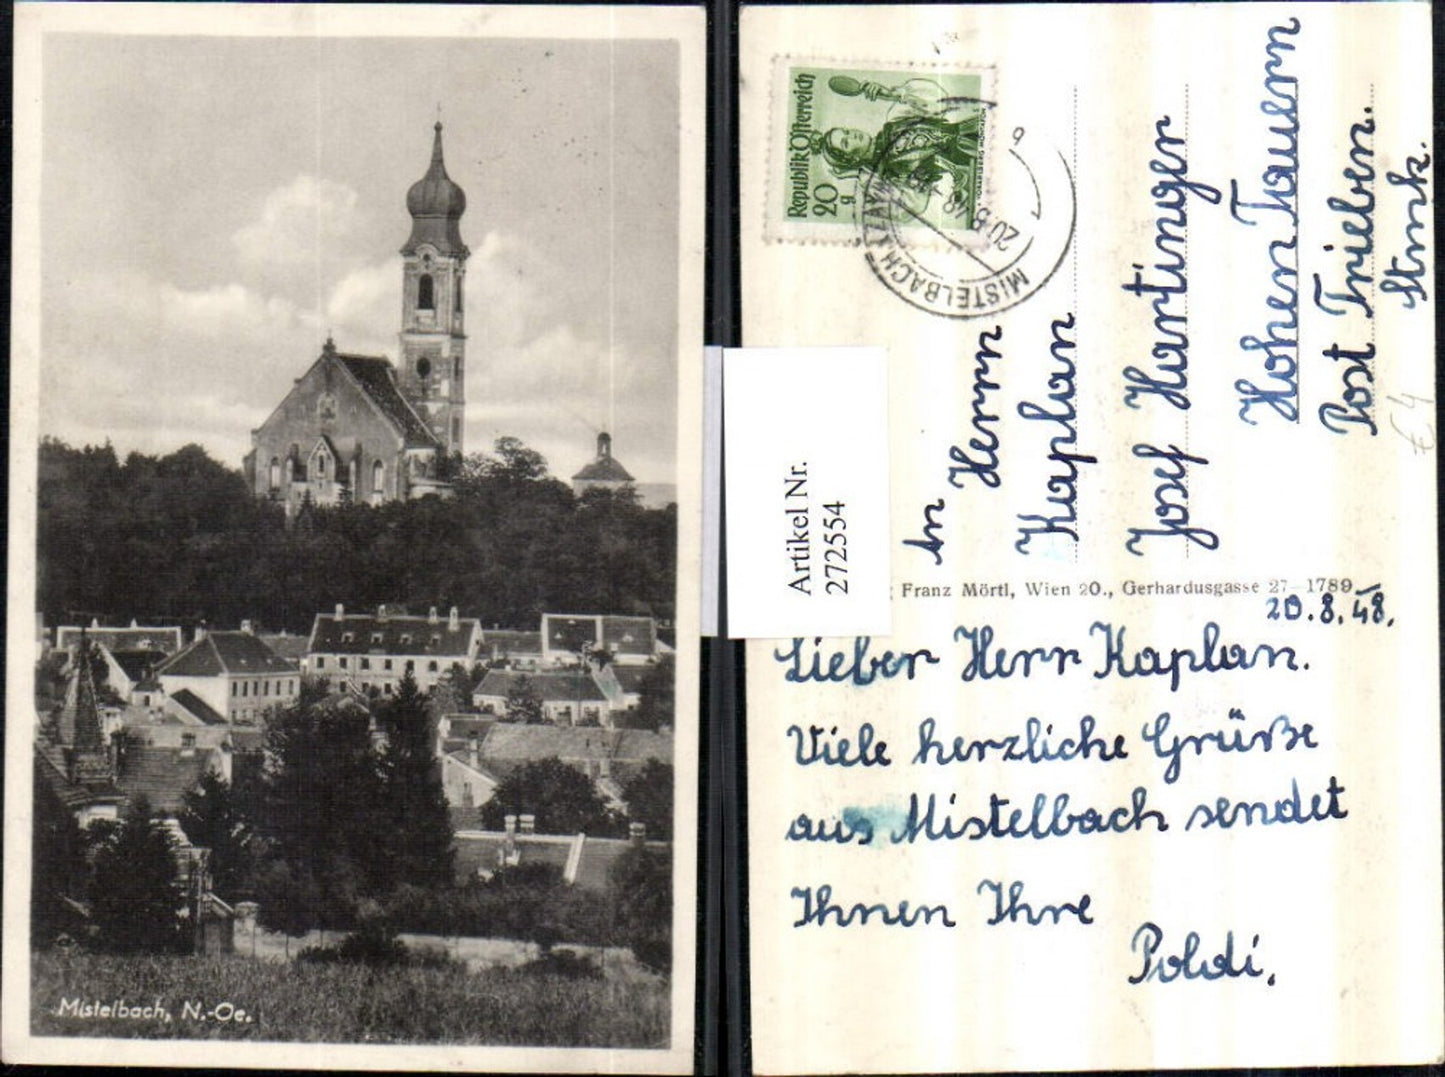 Mistelbach, N.-Oe.
Republik Österreich
20 g
MISTELBACH
20.8.48
Artikel Nr.
272554
An
Herrn
Kaplan
Josef Hartinger
Hohen Tauern
Post Trieben.
Stmk.
€ 4
Franz Mörtl, Wien 20., Gerhardusgasse 27 1789
20.8.48.
Lieber Herr Kaplan.
Viele herzliche Grüße
aus Mistelbach sendet
Ihnen Ihre
Poldi.